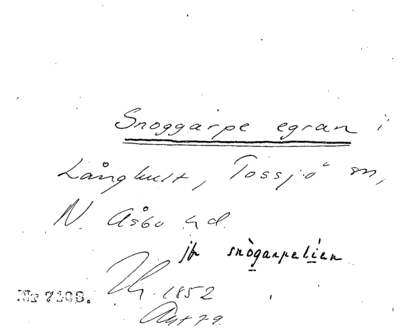 Snoggarpe egran i
Långhult, Tossjö sn,
N. Åsbo hd.
jfr snògarpelíen
Nr 7308.
1852